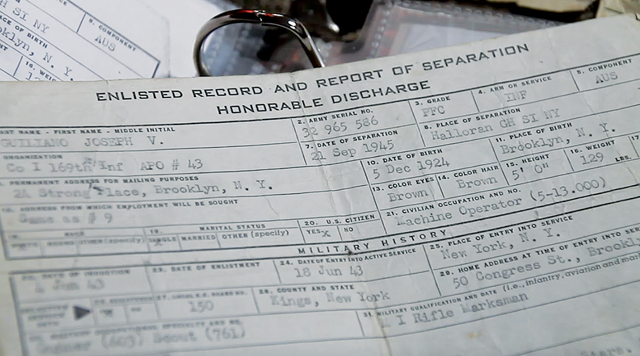 H SI NY
5. COMPONENT
AUS
Brooklyn, N. Y.
ENLISTED RECORD AND REPORT OF SEPARATION
HONORABLE DISCHARGE
LAST NAME - FIRST NAME - MIDDLE INITIAL
GUILIANO JOSEPH V.
2. ARMY SERIAL NO.
32 965 586
3. GRADE
PFC
4. ARM OR SERVICE
INF
5. COMPONENT
AUS
ORGANIZATION
Co I 169th Inf APO # 43
7. DATE OF SEPARATION
21 Sep 1945
8. PLACE OF SEPARATION
Halloran GH SI NY
9. PERMANENT ADDRESS FOR MAILING PURPOSES
2A Strong Place, Brooklyn, N. Y.
10. DATE OF BIRTH
5 Dec 1924
11. PLACE OF BIRTH
Brooklyn, N. Y.
ADDRESS FROM WHICH EMPLOYMENT WILL BE SOUGHT
Same as # 9
13. COLOR EYES
Brown
14. COLOR HAIR
Brown
15. HEIGHT
5' 0"
16. WEIGHT
129 LBS.
RACE
19. MARITAL STATUS
SINGLE MARRIED OTHER (specify)
20. U.S. CITIZEN
YES X NO
21. CIVILIAN OCCUPATION AND NO.
Machine Operator (5-13.000)
MILITARY HISTORY
22. DATE OF INDUCTION
4 Jun 43
23. DATE OF ENLISTMENT
24. DATE OF ENTRY INTO ACTIVE SERVICE
18 Jun 43
25. PLACE OF ENTRY INTO SERVICE
New York, N. Y.
150
28. COUNTY AND STATE
Kings, New York
29. HOME ADDRESS AT TIME OF ENTRY INTO SER
50 Congress St., Brookl
AND NO.
(603) Scout (761)
31. MILITARY QUALIFICATION AND DATE (i.e., infantry, aviation and mar
I Rifle Marksman